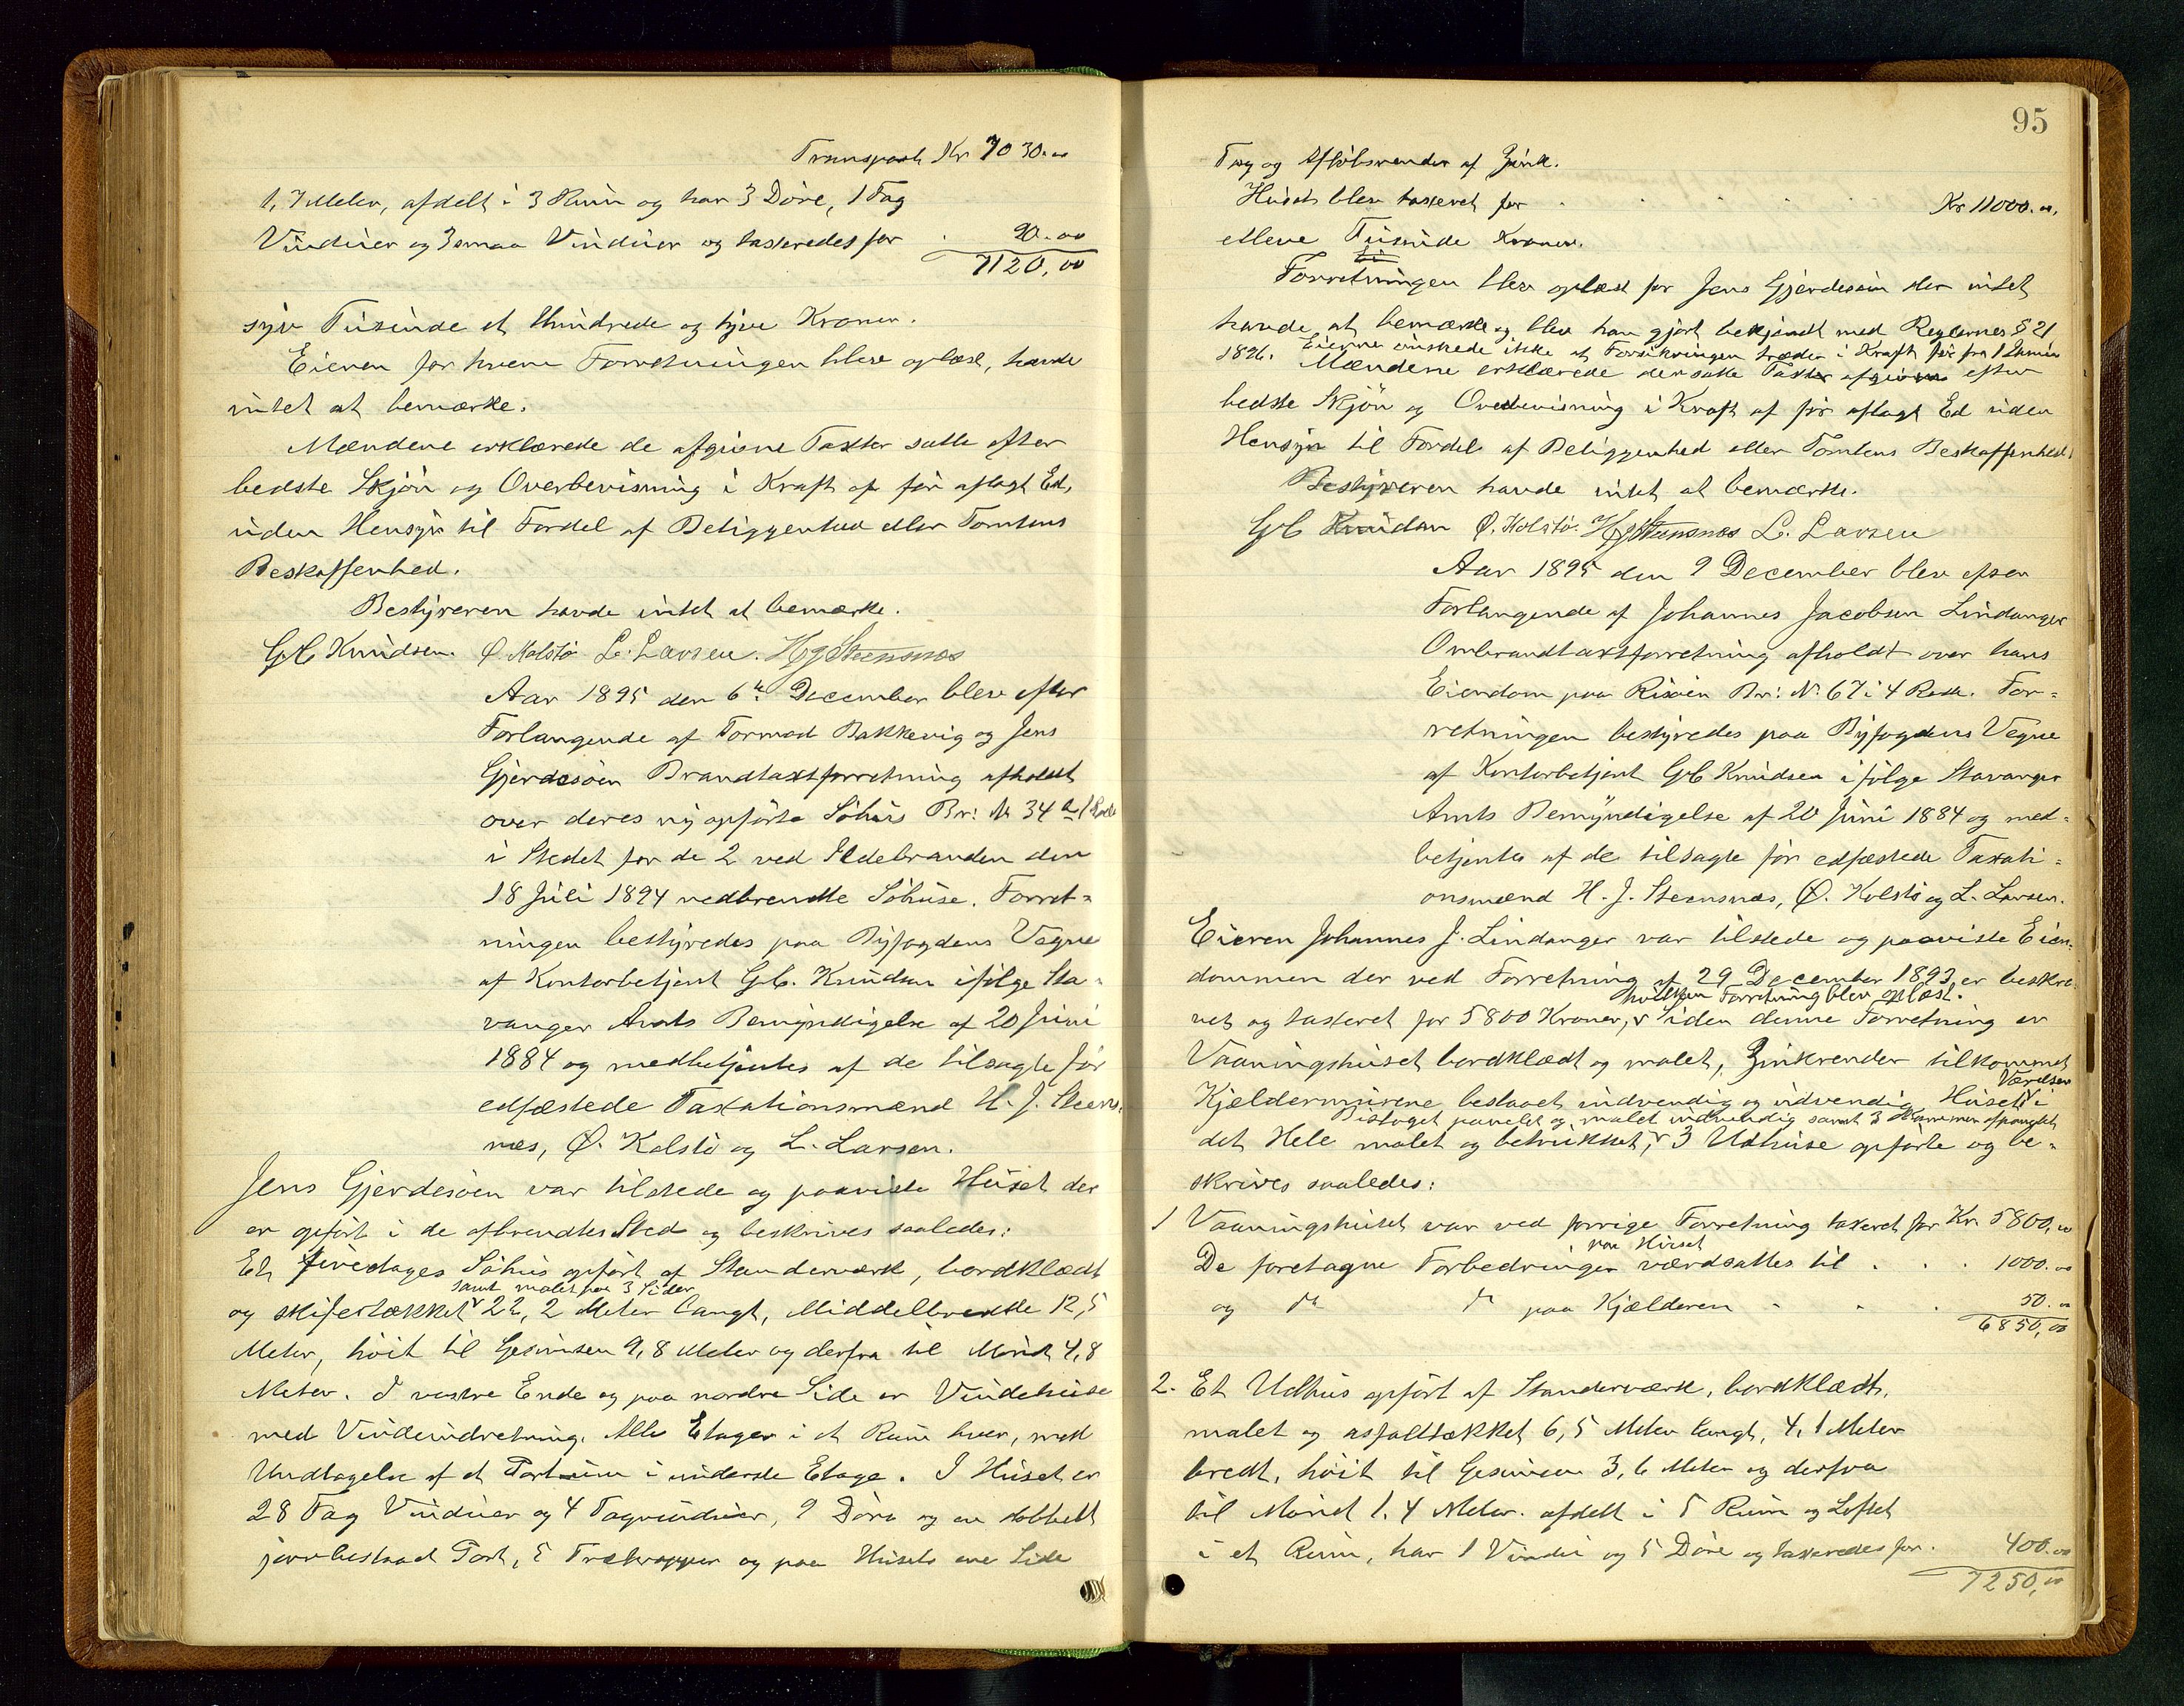 Transport Kr 7030.00
1,7 Meter, afdelt i 3 Rum og har 3 Döre, 1 Fag
Vinduer og 3 smaa Vinduer og taxeredes for . 90.00
7120,00
syv Tusinde et Hundrede og tyve Kroner.
Eieren for hvem Forretningen blev oplæst, havde
intet at bemærke.
Mændene erklærede de afgivne Taxter satte efter
bedste Skjön og Overbevisning i Kraft af för aflagt Ed,
uden Hensyn til Fordel af Beliggenhed eller Tomtens
Beskaffenhed.
Bestyreren havde intet at bemærke.
Knudsen. Ø. Kolstö L. Larsen. H J Steensnæs
Aar 1895 den 6te December blev efter
Forlangende af Tormod Bakkevig og Jens
Gjerdesöen Brandtaxtforretning afholdt
over deres ny opförte Söhus Br: N 34 a 1 Rode
i Stedet for de 2 ved Ildebranden den
18 Juli 1894 nedbrendte Söhuse. Forret-
ningen bestyredes paa Byfogdens Vegne
af Kontorbetjent Knudsen ifölge Sta-
vanger Amts Bemyndigelse af 20 Juni
1884 og medbetjentes af de tilsagte för
edfæstede Taxationsmænd H. J. Steens-
næs, Ø. Kolstö og L. Larsen.
Jens Gjerdesöen var tilstede og paaviste Huset der
er opfört i de afbrendtes Sted og beskrives saaledes:
Et firedages Söhus opfört af Standerværk, bordklædt
samt malet paa 3 Sider
og skifertækket v 22,2 Meter langt, Middelbredde 12,5
Meter, höit til Gesimsen 9,8 Meter og derfra til Mönet 4,8
Meter. I vestre Ende og paa nordre Side er Vindehuse
med Vindeindretning. Alle Etager i et Rum hver, med
Undtagelse af et i underste Etage. I Huset er
28 Fag Vinduer og 4 Tagvinduer, 9 Döre og en dobbelt
jernbeslaaet Port, 5 Trætrapper og paa Husets ene Side
95
Tag og Aflöbsrender af Zink.
Huset blev taxeret for . . . . . Kr 11000.00,
elleve Tusinde Kroner.
Forretningen blev oplæst for Jens Gjerdesöen der intet
havde at bemærke og blev han gjort bekjendt med Reglernes § 21
Eierne önskede ikke at Forsikringen træder i Kraft för fra 1 Januar
1896. Mændene erklærede den satte Taxt efter
bedste Skjön og Overbevisning i Kraft af för aflagt Ed uden
Hensyn til Fordel af Beliggenhed eller Tomtens Beskaffenhed.
Bestyreren havde intet at bemærke.
Knudsen Ø. Kolstö. H J Steensnæs L. Larsen
Aar 1895 den 9 December blev efter
Forlangende af Johannes Jacobsen Lindanger
Ombrandtaxtforretning afholdt over hans
Eiendom paa Risöen Br: N. 67 i 4 Rode. For-
retningen bestyredes paa Byfogdens Vegne
af Kontorbetjent Knudsen ifölge Stavanger
Amts Bemyndigelse af 20 Juni 1884 og med-
betjentes af de tilsagte för edfæstede Taxati-
onsmænd H. J. Steensnæs, Ø. Kolstö og L. Larsen.
Eieren Johannes J. Lindanger var tilstede og paaviste Eien-
dommen der ved Forretning af 29 December 1893 er beskre-
hvilken Forretning blev oplæst.
vet og taxeret for 5800 Kroner, v Siden denne Forretning er
Vaaningshuset bordklædt og malet, Zinkrender tilkommet
Værelser
Kjældermurene beslaaet indvendig og udvendig Husets v i
Bislaget panelet og malet indvendig samt 3 Kammer afpanelet
det Hele malet og betrukket, v 3 Udhuse opförte og be-
skrives saaledes:
1 Vaaningshuset var ved forrige Forretning taxeret for Kr. 5800,00
paa Huset
De foretagne Forbedringer værdsattes til . . . 1000.00
og do do paa Kjælderen . . . 50.00
6850,00
2. Et Udhus opfört af Standerværk, bordklædt,
malet og asfalttækket 6,5 Meter langt, 4,1 Meter
bredt, höit til Gesimsen 3,6 Meter og derfra
til Mönet 1.4 Meter. afdelt i 5 Rum og Loftet
i et Rum, har 1 Vindu og 5 Döre og taxeredes for. 400.00
7250,00